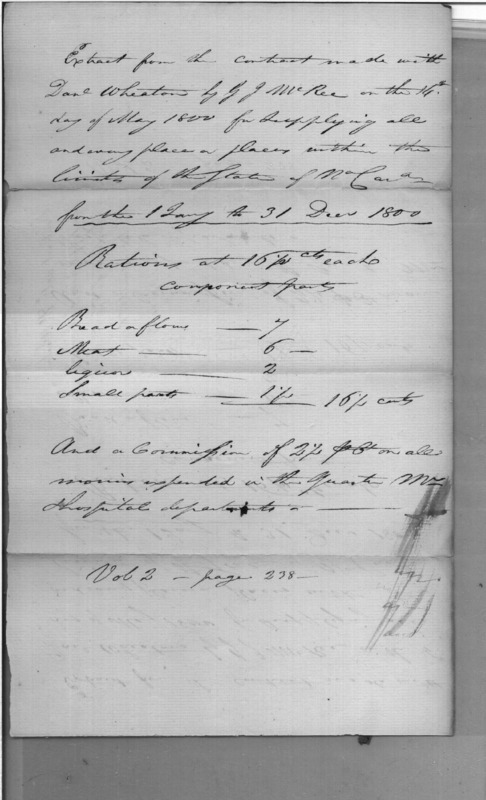 Extract from the contract made with
Danl Wheaton by J J McRee on the 14th
day of May 1800 for supplying all
and every place or places within the
limits of the State of No Cara
from the 1 Jany to 31 Decr 1800
Rations at 16½ cts each
component parts
Bread or flour — 7
Meat — 6 —
liquor — 2
Small parts — 1½ 16½ cents
And a Commission of 2½ on all
monies expended in the Quarter Mr
Hospital departments —
Vol 2 — page 238 —